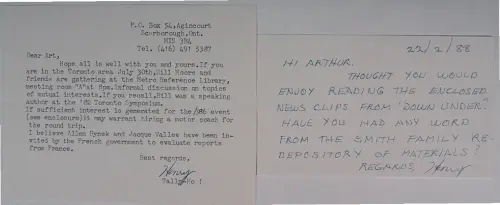 P.O. Box 54,Agincourt
Scarborough,Ont.
M1S 3B4
Tel. (416) 491 5387
Dear Art,
Hope all is well with you and yours.If you
are in the Toronto area July 30th,Bill Moore and
friends are gathering at the Metro Reference Library,
meeting room "A"at 8pm.Informal discussion on topics
of mutual interests.If you recall,Bill was a speaking
author at the '82 Toronto Symposium.
If sufficient interest is generated for the event
(see enclosure)it may warrant hiring a motor coach for
the round trip.
I believe Allen Hynek and Jacque Vallee have been in-
vited by the French government to evaluate reports
from France.
Best regards,
Henry
Tally-Ho !
22/2/88
HI ARTHUR.
THOUGHT YOU WOULD
ENJOY READING THE ENCLOSED
NEWS CLIPS FROM 'DOWN UNDER'.
HAVE YOU HAD ANY WORD
FROM THE SMITH FAMILY RE-
DEPOSITORY OF MATERIALS?
REGARDS, Henry